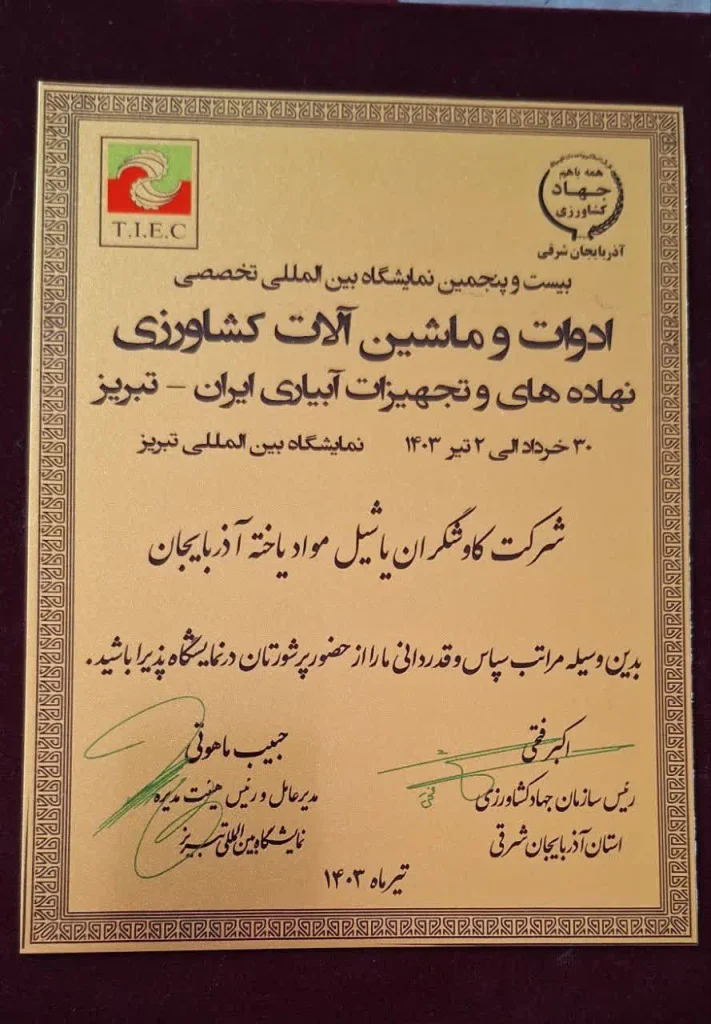 T.I.E.C
همه با هم
جهاد
کشاورزی
آذربایجان شرقی
بیست و پنجمین نمایشگاه بین المللی تخصصی
ادوات و ماشین آلات کشاورزی
نهاده های و تجهیزات آبیاری ایران – تبریز
۳۰ خرداد الی ۲ تیر ۱۴۰۳ نمایشگاه بین المللی تبریز
شرکت کاوشگران یاشیل مواد یاخته آذربایجان
بدین وسیله مراتب سپاس و قدردانی ما را از حضور پرشورتان در نمایشگاه پذیرا باشید.
اکبر فتحی
رئیس سازمان جهاد کشاورزی
استان آذربایجان شرقی
حبیب ماهوتی
مدیر عامل و رئیس هیئت مدیره
نمایشگاه بین المللی تبریز
تیر ماه ۱۴۰۳